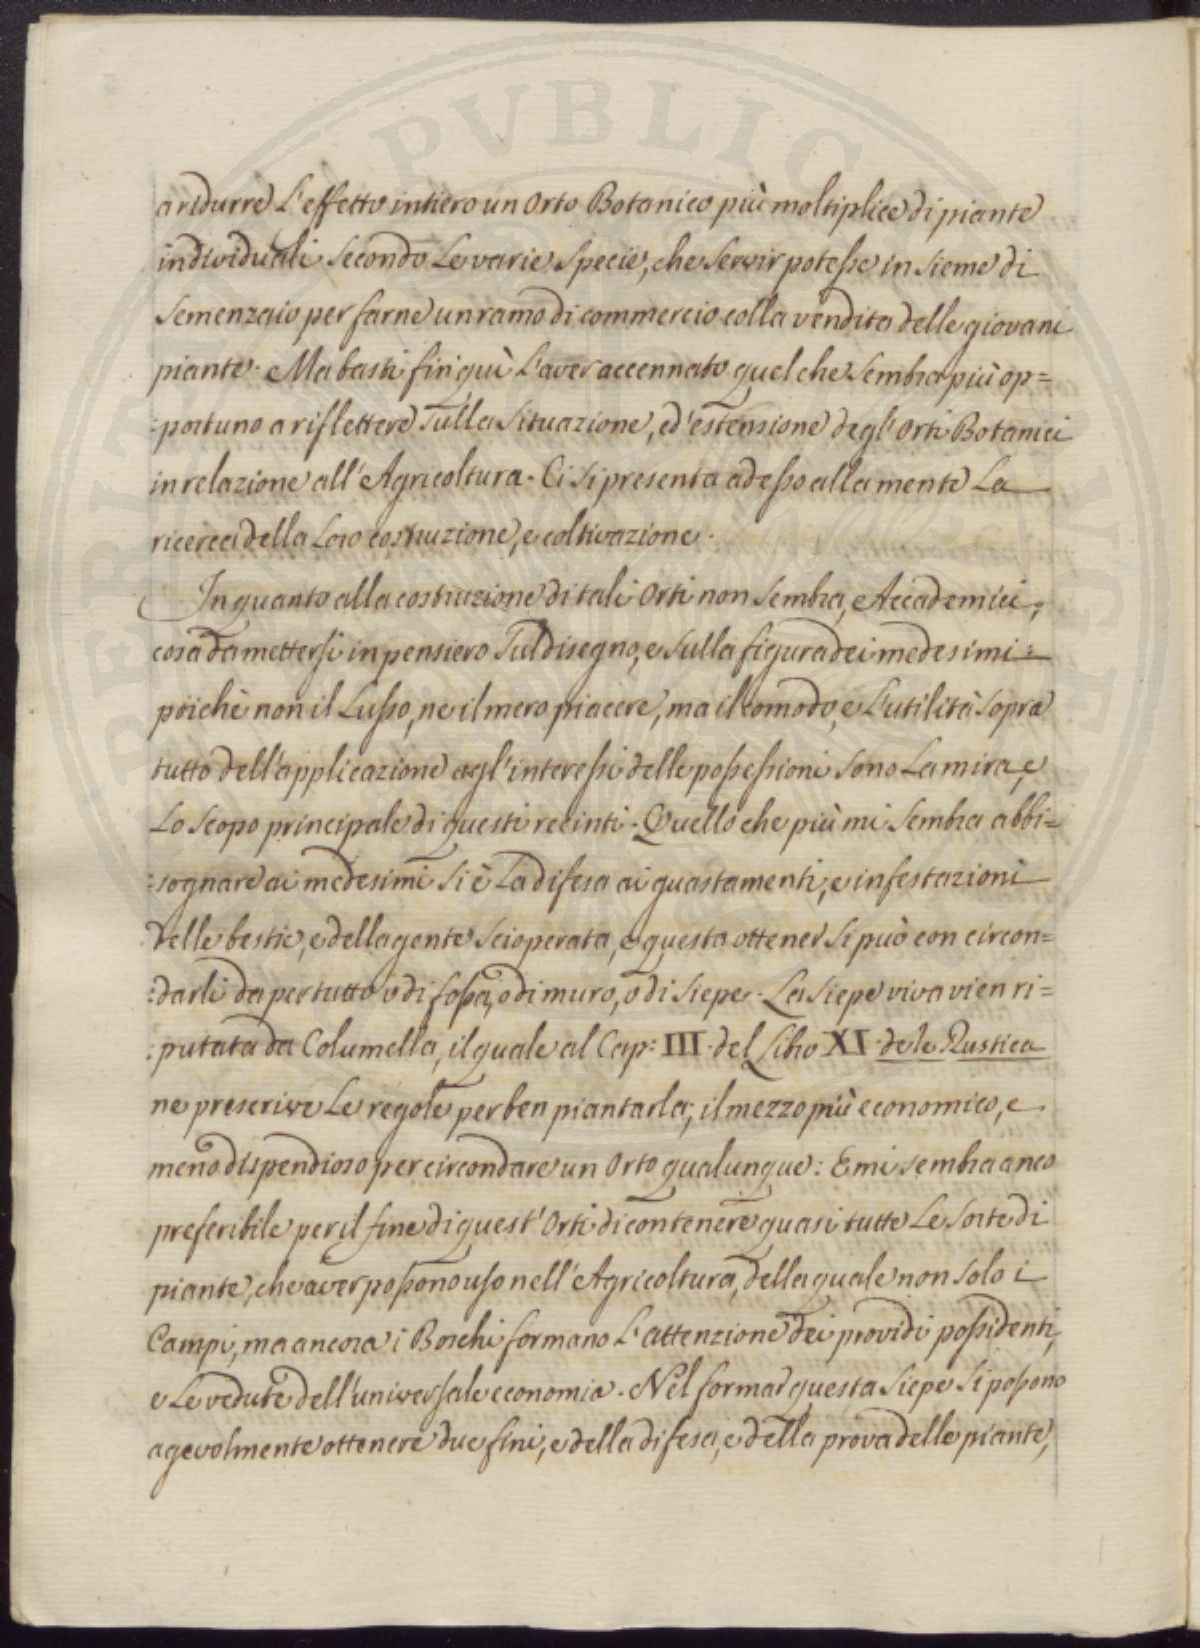 PVBLIC
a ridurre l'effetto intiero un Orto Botanico più moltiplice di piante
individuali secondo le varie specie, che servir potesse insieme di
semenzaio per farne un ramo di commercio colla vendita delle giovani
piante. Ma basti fin quì l'aver accennato quel che sembra più op=
:portuno a riflettere sulla situazione, ed'estensione degl'Orti Botanici
in relazione all'Agricoltura. Ci si presenta adesso alla mente la
ricerca della loro costruzione, e coltivazione.
In quanto alla costruzione di tali Orti non sembra, Accademici,
cosa da mettersi in pensiero sul disegno, e sulla figura dei medesimi:
poichè non il lusso, ne il mero piacere, ma il comodo, e l'utilità sopra
tutto dell'applicazione agl'interessi delle possessioni sono la mira, e
lo scopo principale di questi recinti. Quello che più mi sembra abbi=
:sognare ai medesimi si è la difesa ai guastamenti, e infestazioni
delle bestie, e della gente scioperata, e questa ottener si può con circon=
:darli da per tutto o di fossa, o di muro, o di siepe. La siepe viva vien ri=
:putata da Columella, il quale al Cap: III. del Libro XI. de le Rustica
ne prescrive le regole per ben piantarla; il mezzo più economico, e
meno dispendioso per circondare un Orto qualunque: E mi sembra anco
preferibile per il fine di quest'Orti di contenere quasi tutte le sorte di
piante, che aver possono uso nell'Agricoltura, della quale non solo i
Campi, ma ancora i Boschi formano l'attenzione dei providi possidenti,
e le vedute dell'universale economia. Nel formar questa siepe si possono
agevolmente ottenere due fini, e della difesa, e della prova delle piante,